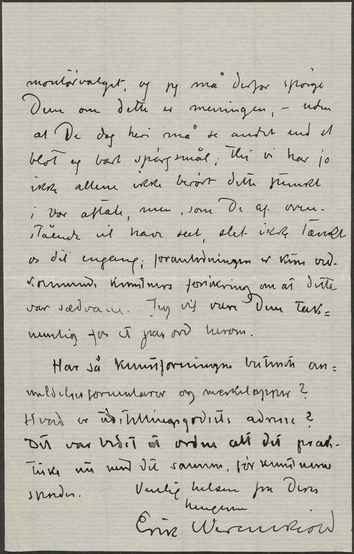 og jeg må derfor spørge
Dem om dette er meningen, – uden
at De dog heri må se andet end et
blot og bart spørgsmål; thi vi har jo
ikke allene ikke berørt dette punkt
i vor aftale, men, som De af oven-
stående vil have seet, slet ikke tænkt
os det engang; foranledningen er kun ved-
kommende kunstners forsikring om at dette
var sædvane. Jeg vil være Dem tak-
nemlig for et par ord herom.
Har så kunstforeningen an-
meldelsesformularer og merkelapper?
Hvad er udstillingsgodsets adresse?
Det var bedst at ordne alt det prak-
tiske nu med det samme, før kunstnerne
spredes.
Venlig hilsen fra Deres
hengivne
Erik Werenskiold